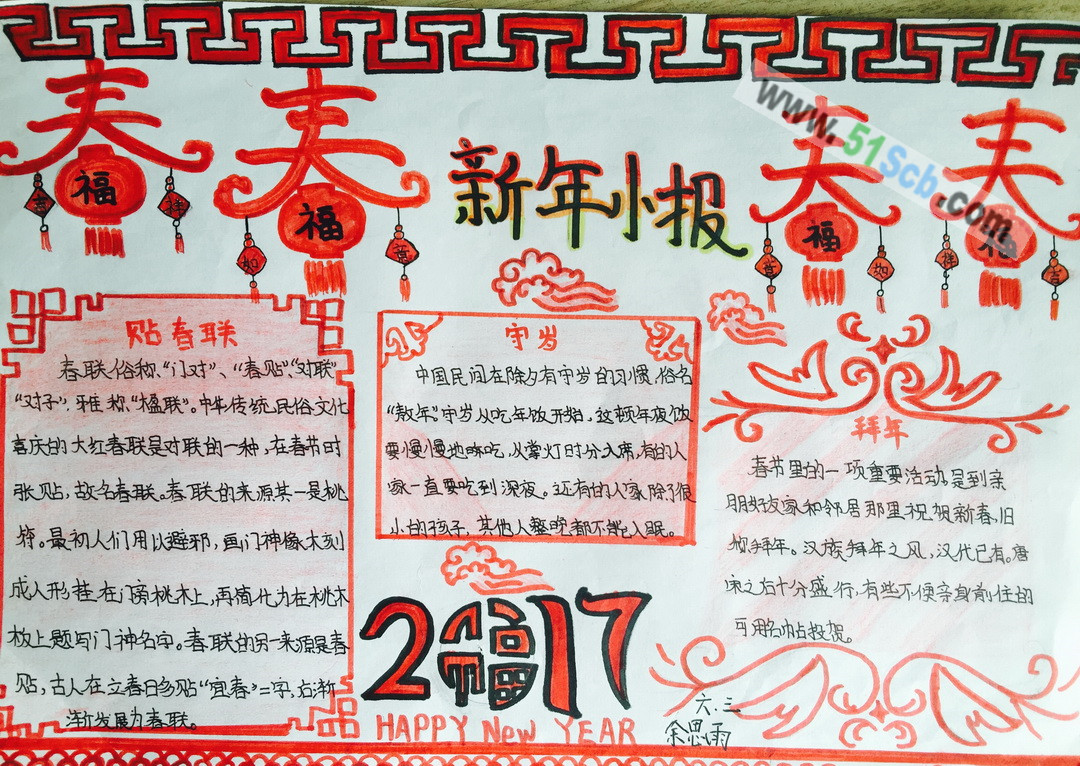 春
春
春
春
福
福
福
福
吉
祥
如
意
意
如
祥
吉
新年小报
www.51Scb.com
贴春联
春联俗称,“门对”、“春贴”、“对联”
“对子”,雅称“楹联”。中华传统民俗文化
喜庆的大红春联是对联的一种,在春节时
张贴,故名春联。春联的来源其一是桃
符。最初人们用以避邪,画门神像木刻
成人形挂在门旁桃木上,再简化为在桃木
板上题写门神名字。春联的另一来源是春
贴,古人在立春日多贴“宜春”二字,后渐
渐发展为春联。
守岁
中国民间在除夕有守岁的习惯,俗名
“熬年”守岁从吃年饭开始,这顿年夜饭
要慢慢地吃,从掌灯时分入席,有的人
家一直要吃到深夜。还有的人家除了很
小的孩子,其他人整晚都不能入眠。
拜年
春节里的一项重要活动是到亲
朋好友家和邻居那里祝贺新春,旧
称拜年。汉族拜年之风,汉代已有。唐
宋之后十分盛行,有些不便亲身前往的
可用名帖投贺。
2福017
HAPPY New YEAR
六.三
余思雨